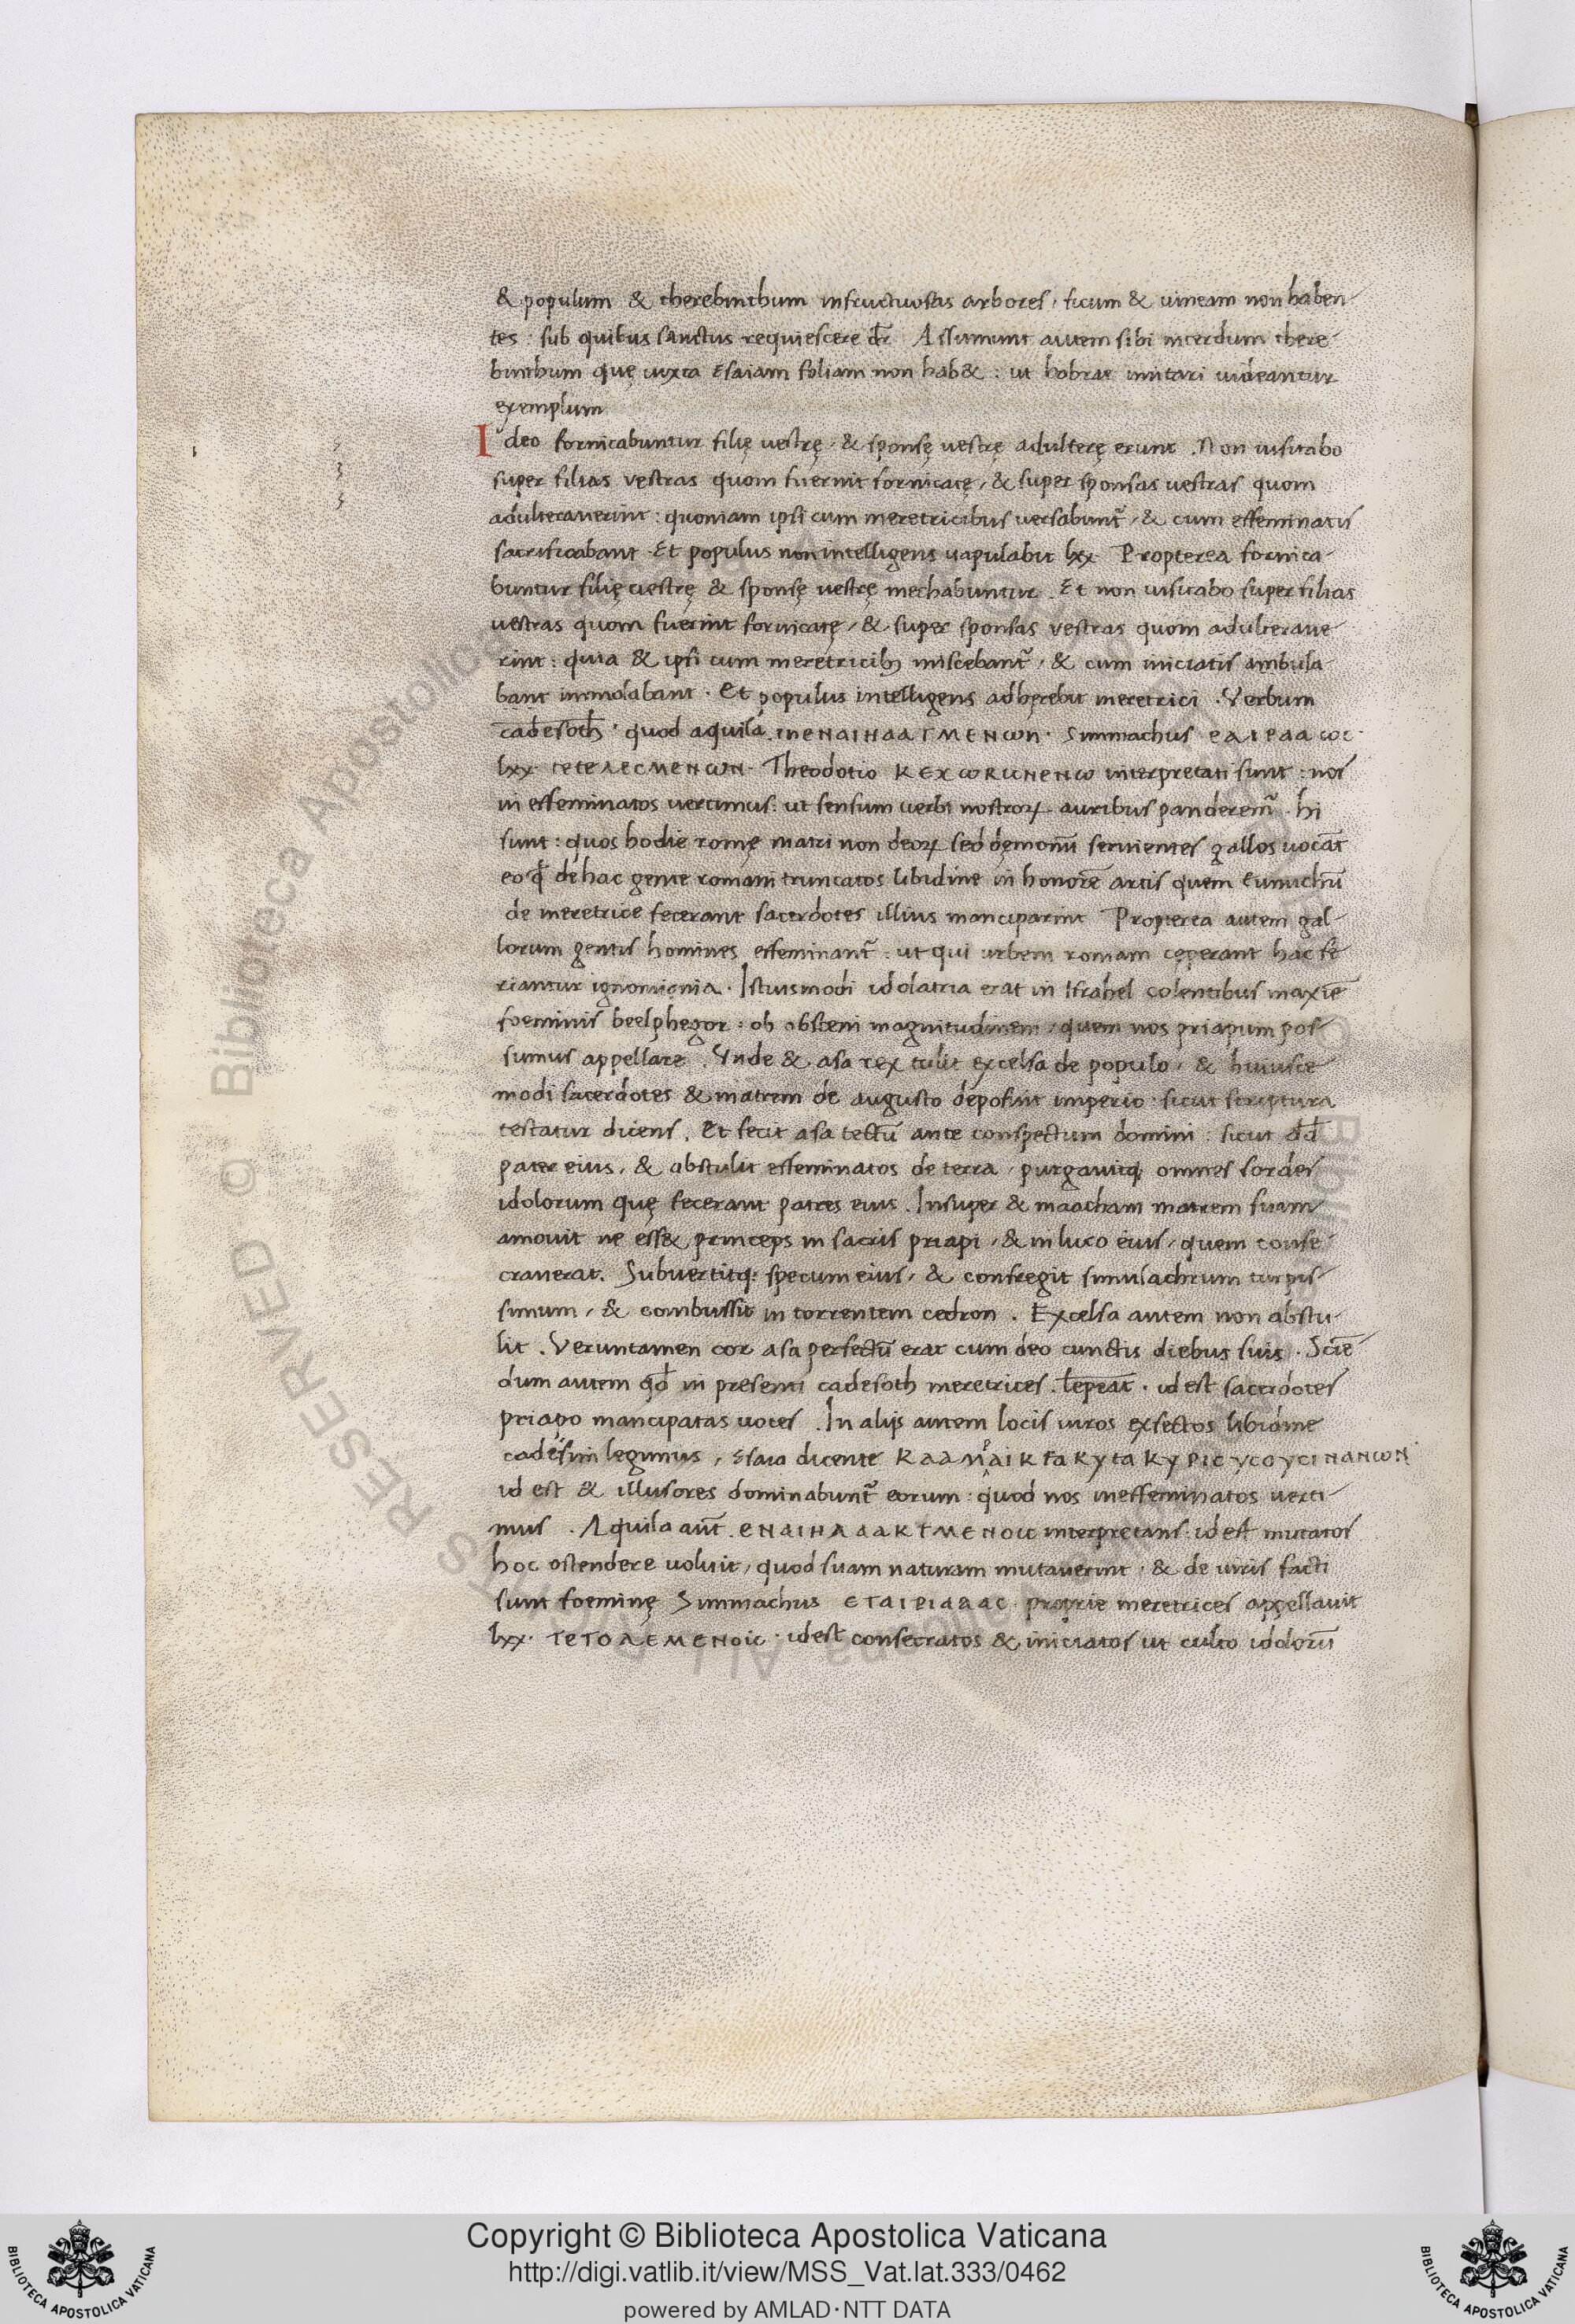 & populum & therebinthum infructuosas arbores, ficum & uineam non haben
tes : sub quibus sanctus requiescere dr̄ Assumunt autem sibi interdum there
binthum quę iuxta Esaiam foliam non hab& : ut hobrae imitari uideantur
exemplum
Ideo fornicabuntur filię vestrę . & sponsę vestrę adulterę erunt . Non uisitabo
super filias vestras quom fuerint fornicatę, & super sponsas vestras quom
adulterauerint : quoniam ipsi cum meretricibus uersabunt᷑, & cum effeminatis
sacrificabant . Et populus non intelligens uapulabit lxx Propterea fornica
buntur filię uestrę & sponsę vestrę mechabuntur . Et non uisitabo super filias
vestras quom fuerint fornicatę, & super sponsas vestras quom adulteraue
rint : quia & ipsi cum meretricibꝫ miscebant᷑, & cum iniciatis ambula
bant immolabant . Et populus intelligens adherebit meretrici . Verbum
cadesoth . quod aquila . Summachus
lxx . τετελεϲμενων . Theodotio interpretati sunt : nos
in effeminatos uertimus : ut sensum uerbi nostroꝝ auribus panderem᷑ . hi
sunt : quos hodie romę matri non deoꝝ sed dęmonū seruientes gallos uocāt
eo qđ de hac gente romani truncatos libidine in honorē artis quem eunuchū
de meretrice fecerant sacerdotes illius manciparint Propterea autem gal
lorum gentis homines effeminant᷑ : ut qui urbem romam ceperant hac fe
riantur ignomignia . Istiusmodi idolatria erat in Israhel colentibus maxīe
foeminis beelphegor : ob obsceni magnitudinem, quem nos priapum pos
sumus appellare . Vnde & asa rex tulit excelsa de populo, & huiusce
modi sacerdotes & matrem de augusto deposuit imperio : sicut scriptura
testatur dicens . Et fecit asa tectū ante conspectum domini : sicut dđ
pater eius, & abstulit effeminatos de terra, purgauitqꝫ omnes sordes
idolorum quę fecerant patres eius . Insuper & maacham matrem suam
amouit ne ess& princeps in sacris priapi, & in luco eius, quem conse
crauerat . Subuertitqꝫ specum eius, & confregit simulachrum turpis
simum, & combussit in torrentem cedron . Excelsa autem non abstu
lit . Veruntamen cor asa perfectū erat cum deo cunctis diebus suis . Sciē
dum autem qđ in presenti cadesoth meretrices . id est sacerdotes
priapo mancipatas uoces . In alijs autem locis uiros exsectos libidine
cadesim legimus, Esaia dicente
id est & illusores dominabunt᷑ eorum : quod nos ineffeminatos uerti
mus . Aquila aūt . interpretans . id est mutatos
hoc ostendere uoluit, quod suam naturam mutauerint, & de uiris facti
sunt foeminę Summachus proprie meretrices appellauit
lxx . τετολεμενοιϲ . id est consecratos & iniciatos ut culto idolorū
Copyright © Biblioteca Apostolica Vaticana
http://digi.vatlib.it/view/MSS_Vat.lat.333/0462
powered by AMLAD·NTT DATA